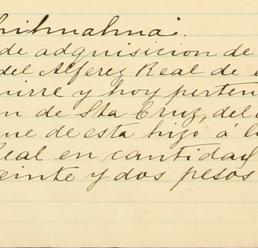 Chihuahua.
de adquisicion de
del Alferez Real de
uirre y hoy perten
n de Sta Cruz, del
ue de esta hizo á l
Real en cantidad
einte y dos pesos